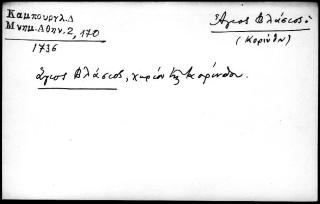 Καμπουργλ. Δ
Μνημ. Αθην. 2, 170
1736
Ἅγιος Βλάσιος
(Κορίνθου)
ἅγιος Βλάσιος, χωρίον τῆς Κορίνθου.